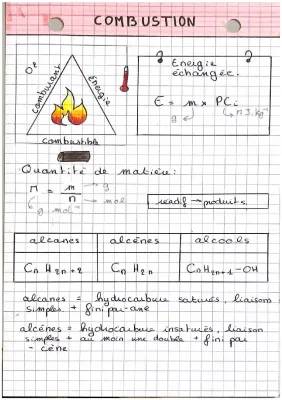 COMBUSTION
O²
comburant
énergie
combustible
Energie
échangée.
E = m × PCi
g
J.kg⁻¹
Quantité de matière:
M = m/n
g
mol
g mol⁻¹
réactif → produits
alcanes alcènes alcools
CnH2n+2 CnH2n CnH2n+1-OH
alcanes = hydrocarbure saturés, liaison
simples + fini par-ane
alcènes = hydrocarbure insaturés, liaison
simples + au moin une double + fini par
- cène